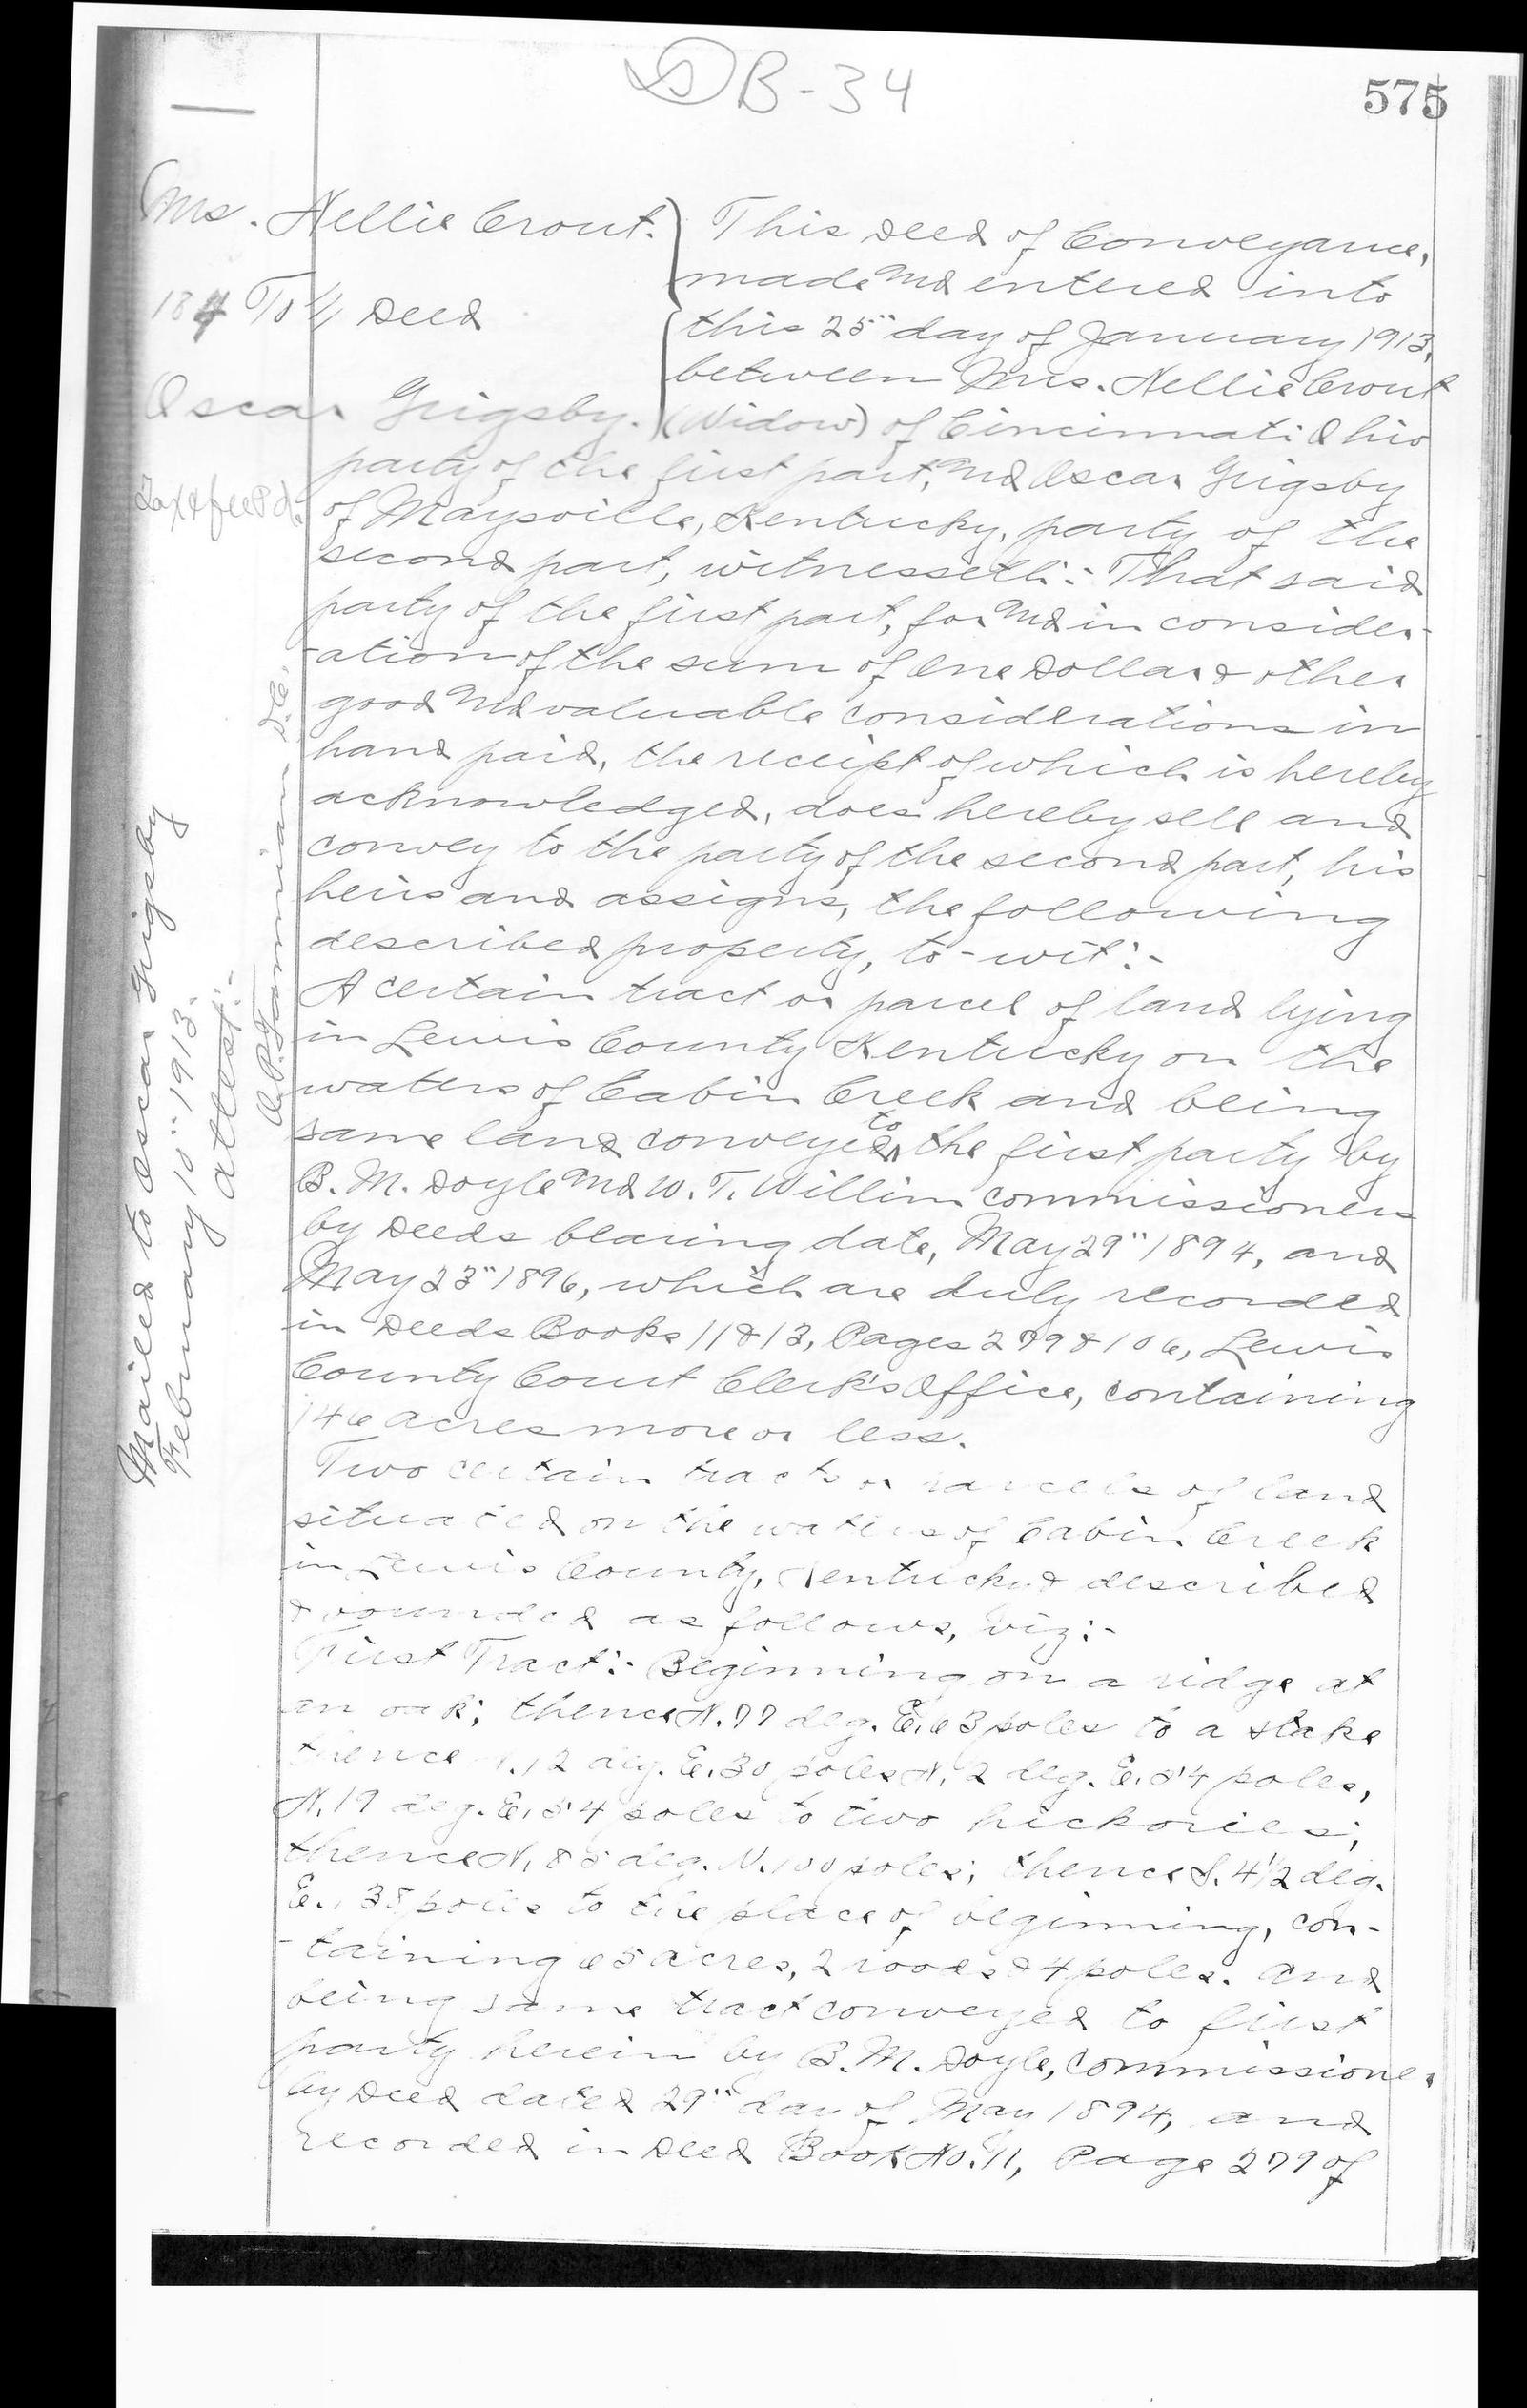 DB-34
575
Mrs. Nellie Crout.
184 To // Deed
Oscar Grigsby.
Tax & fee Pd.
This Deed of Conveyance,
made and entered into
this 25" day of January 1913,
between Mrs. Nellie Crout
(Widow) of Cincinnati Ohio
party of the first part, and Oscar Grigsby
of Maysville, Kentucky, party of the
second part, witnesseth:- That said
party of the first part, for and in consider-
-ation of the sum of One Dollar & other
good and valuable considerations in
hand paid, the receipt of which is hereby
acknowledged, does hereby sell and
convey to the party of the second part, his
heirs and assigns, the following
described property, to-wit:-
A certain tract or parcel of land lying
in Lewis County Kentucky on the
waters of Cabin Creek and being
same land conveyed to the first party by
B. M. Doyle and W. T. Willim commissioners
by Deeds bearing date, May 29" 1894, and
May 23" 1896, which are duly recorded
in Deeds Books 11 & 13, Pages 279 & 106, Lewis
County Court Clerk's Office, containing
146 acres more or less.
Two certain tracts or parcels of land
situated on the waters of Cabin Creek
in Lewis County, Kentucky & described
& bounded as follows, viz:-
First Tract:- Beginning on a ridge at
an oak; thence N. 77 deg. E. 63 poles to a stake
thence N. 12 deg. E. 30 poles N. 2 deg. E. 54 poles,
N. 19 deg. E. 54 poles to two hickories;
thence N. 85 deg. W. 100 poles; thence S. 4 1/2 deg.
E. 135 poles to the place of beginning, con-
-taining 65 acres, 2 roods & 4 poles. and
being same tract conveyed to first
party herein by B. M. Doyle, Commissioner
by Deed dated 29" day of May 1894, and
recorded in Deed Book No. 11, Page 279 of
Mailed to Oscar Grigsby
February 10" 1913.
attest:-
D.C.